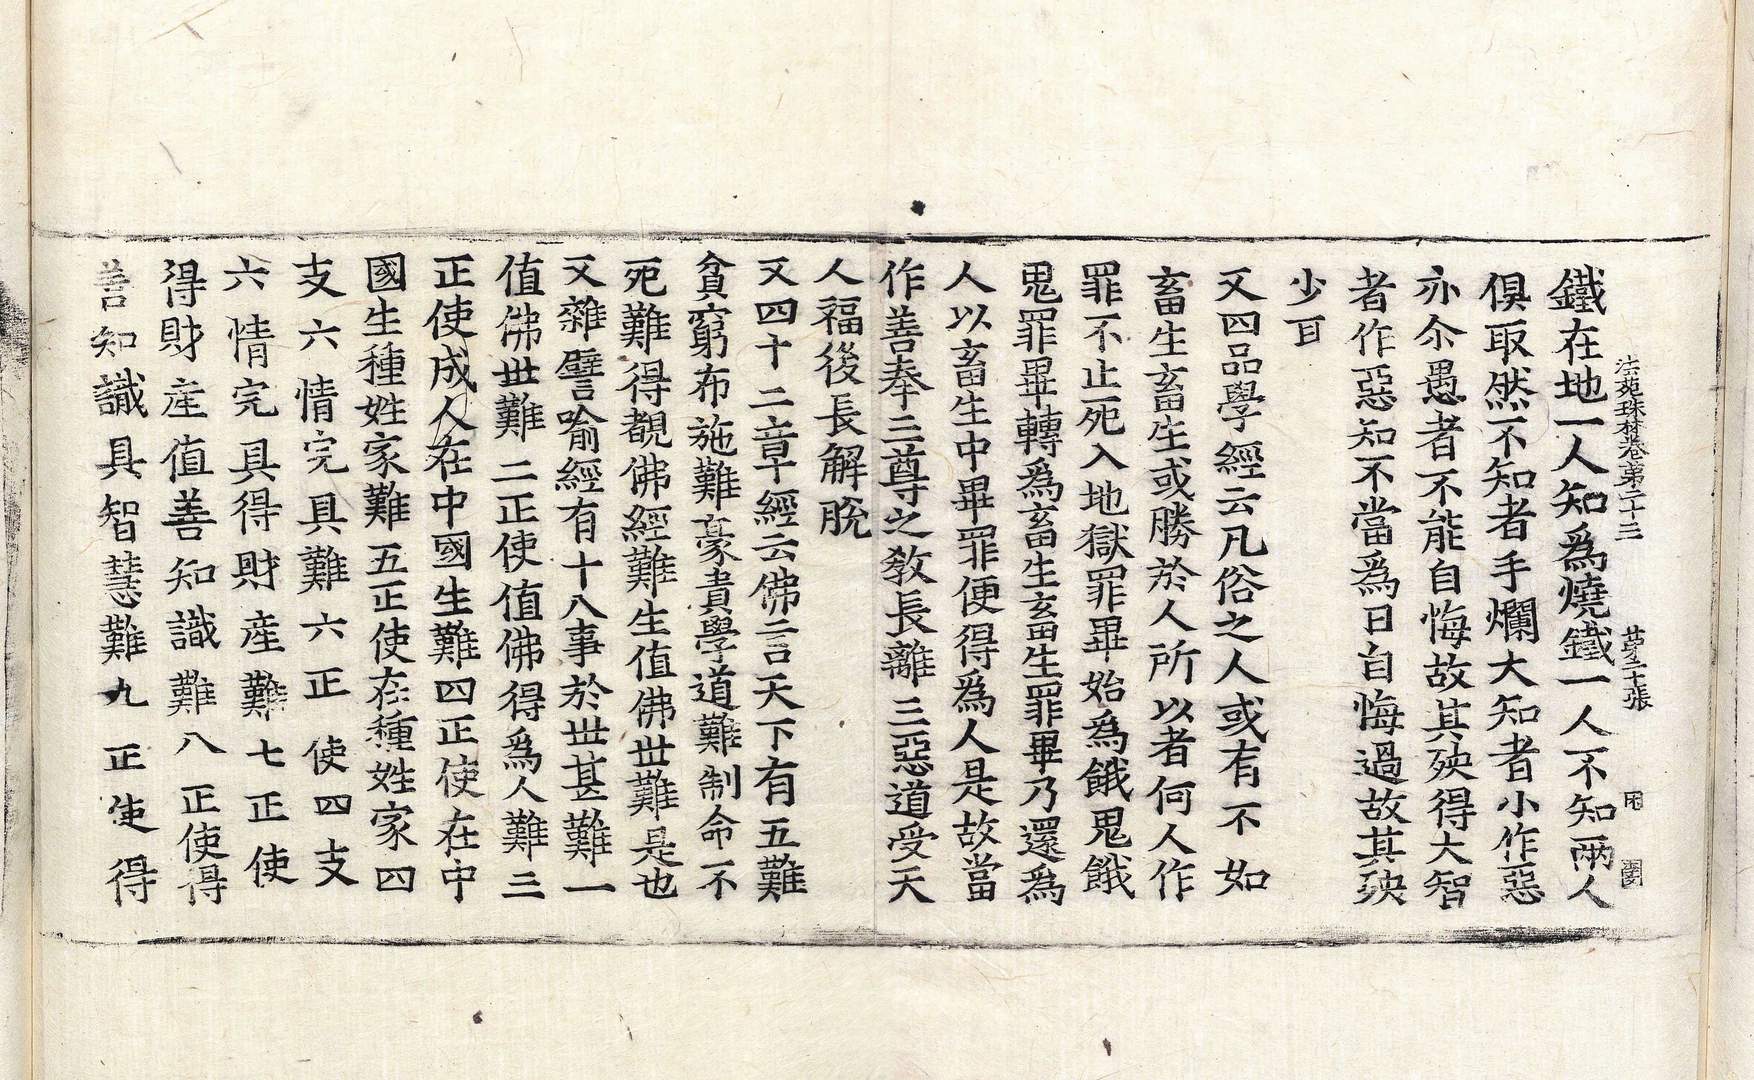 法苑珠林卷第二十三 第二十張 用
鐵在地一人知爲燒鐵一人不知兩人
俱取然不知者手爛大知者小作惡
亦尒愚者不能自悔故其殃得大智
者作惡知不當爲日自悔過故其殃
少耳
又四品學經云凡俗之人或有不如
畜生畜生或勝於人所以者何人作
罪不止死入地獄罪畢始爲餓鬼餓
鬼罪畢轉爲畜生畜生罪畢乃還爲
人以畜生中畢罪便得爲人是故當
作善奉三尊之敎長離三惡道受天
人福後長解脫
又四十二章經云佛言天下有五難
貧窮布施難豪貴學道難制命不
死難得覩佛經難生值佛世難是也
又雜譬喻經有十八事於世甚難一
值佛世難二正使值佛得爲人難三
正使成人在中國生難四正使在中
國生種姓家難五正使在種姓家四
支六情完具難六正使四支
六情完具得財産難七正使
得財産值善知識難八正使得
善知識具智慧難九正使得